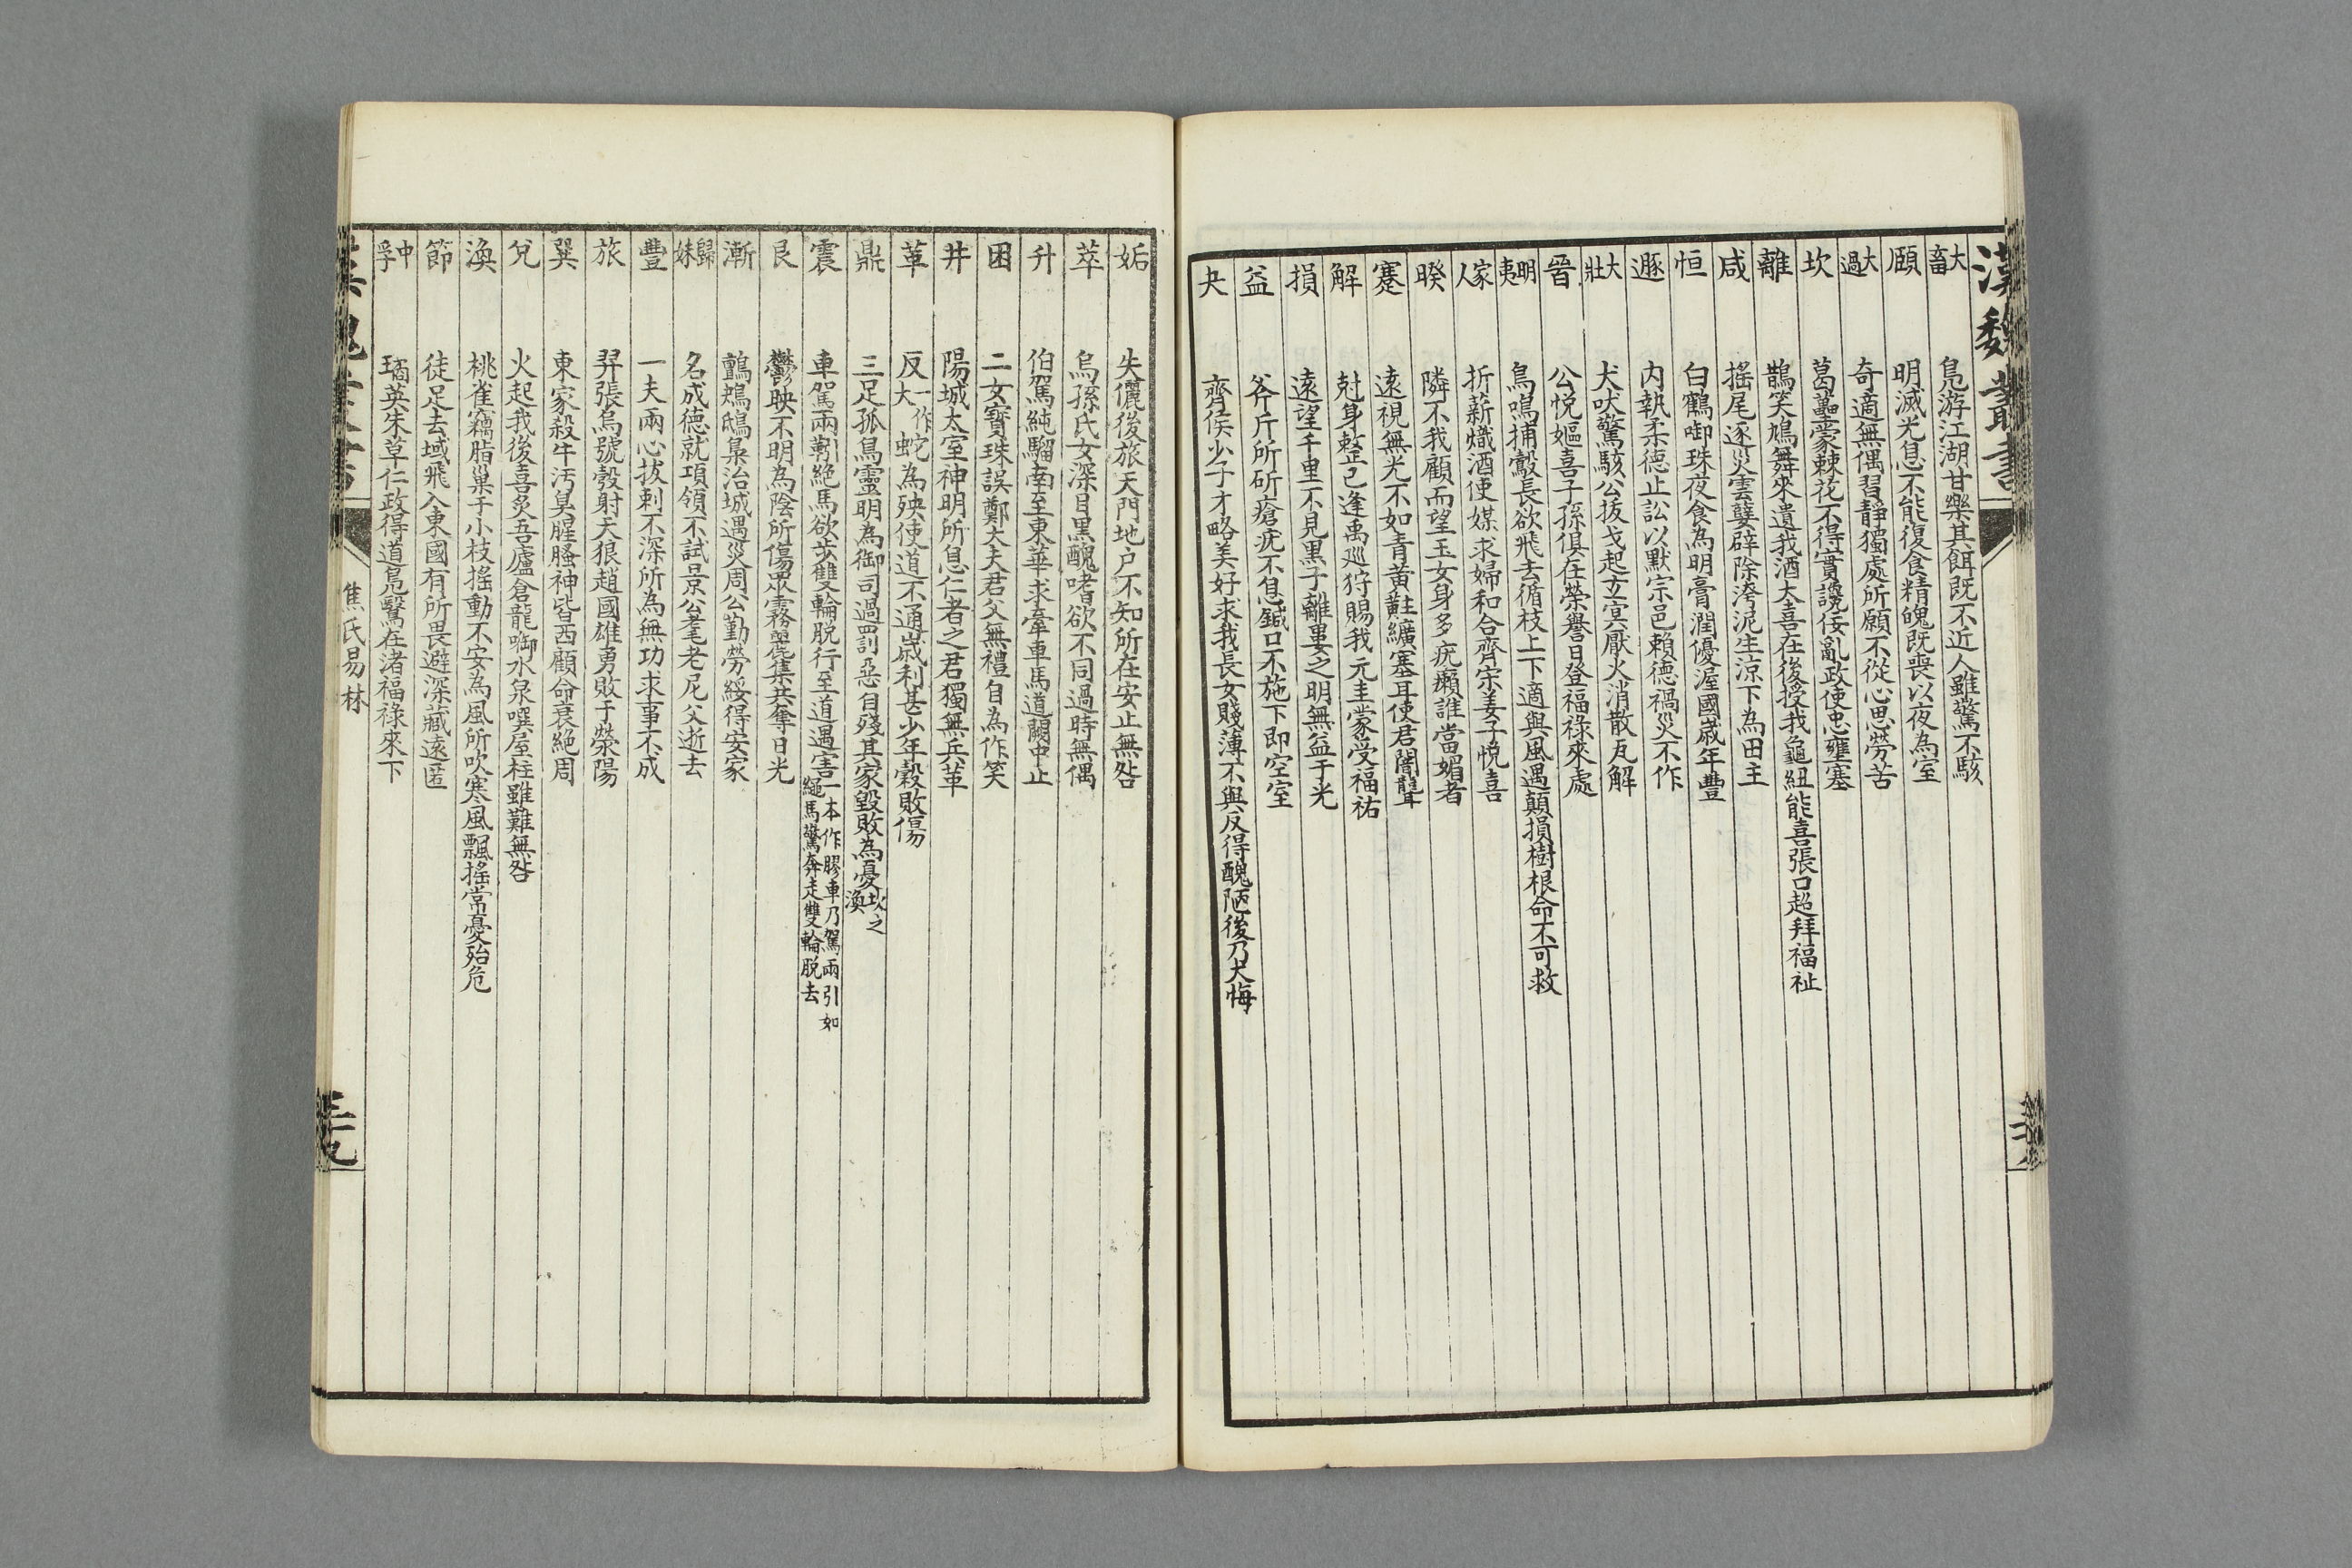 漢魏叢書
大畜 鳧游江湖甘樂其餌既不近人雖驚不駭
頤 明滅光息不能復食精魄既喪以夜為室
大過 奇適無偶習靜獨處所願不從心思勞苦
坎 葛藟蒙棘花不得實讒佞亂政使忠壅塞
離 鵲笑鳩舞來遺我酒大喜在後授我龜紐能喜張口起拜福祉
咸 搖尾逐災雲孽辟除洿泥生涼下為田主
恒 白鶴啣珠夜食為明膏潤優渥國歲年豐
遯 內執柔德止訟以默宗邑賴德禍災不作
大壯 犬吠驚駭公拔戈起玄冥厭火消散瓦解
晉 公悅嫗喜子孫俱在榮譽日登福祿來處
明夷 鳥鳴捕鷇長欲飛去循枝上下適與風遇顛損樹根命不可救
家人 折薪熾酒使媒求婦和合齊宋姜子悅喜
睽 隣不我顧而望玉女身多疣癩誰當媚者
蹇 遠視無光不如青黃黈纊塞耳使君闇聾
解 尅身整己逢禹巡狩賜我元圭蒙受福祐
損 遠望千里不見黑子離婁之明無益于光
益 斧斤所斫瘡疣不息鍼口不施下即空室
夬 齊侯少子才略美好求我長女賤薄不與反得醜陋後乃大悔
姤 失儷後旅天門地户不知所在安止無咎
萃 烏孫氏女深目黑醜嗜欲不同過時無偶
升 伯駕純騮南至東華求牽車馬道闕中止
困 二女寶珠誤鄭大夫君父無禮自為作笑
井 陽城太室神明所息仁者之君獨無兵革
革 反一作大蛇為殃使道不通歲利甚少年穀敗傷
鼎 三足孤鳥靈明為御司過罰惡自殘其家毀敗為憂坎之渙
震 車駕兩靷絕馬欲步雙輪脫行至道遇害一本作膠車乃駕兩引如繩馬驚奔走雙輪脫去
艮 鬱映不明為陰所傷眾霧羣集共奪日光
漸 鸇鴂鴟梟治城遇災周公勤勞綏得安家
歸妹 名成德就項領不試景公耄老尼父逝去
豐 一夫兩心拔刺不深所為無功求事不成
旅 羿張烏號彀射天狼趙國雄勇敗于滎陽
巽 東家殺牛污臭腥臊神皆西顧命衰絕周
兌 火起我後喜炙吾廬倉龍啣水泉噀屋柱雖難無咎
渙 桃雀竊脂巢于小枝搖動不安為風所吹寒風飄搖常憂殆危
節 徒足去域飛入東國有所畏避深藏遠匿
中孚 璚英朱草仁政得道鳧鷖在渚福祿來下
焦氏易林